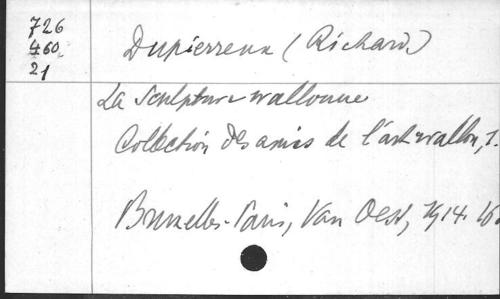 726
460
21
Dupierreux (Richard)
La Sculpture wallonne
Collection des amis de l'art wallon, 1.
Bruxelles-Paris, Van Oest, 1914. 16